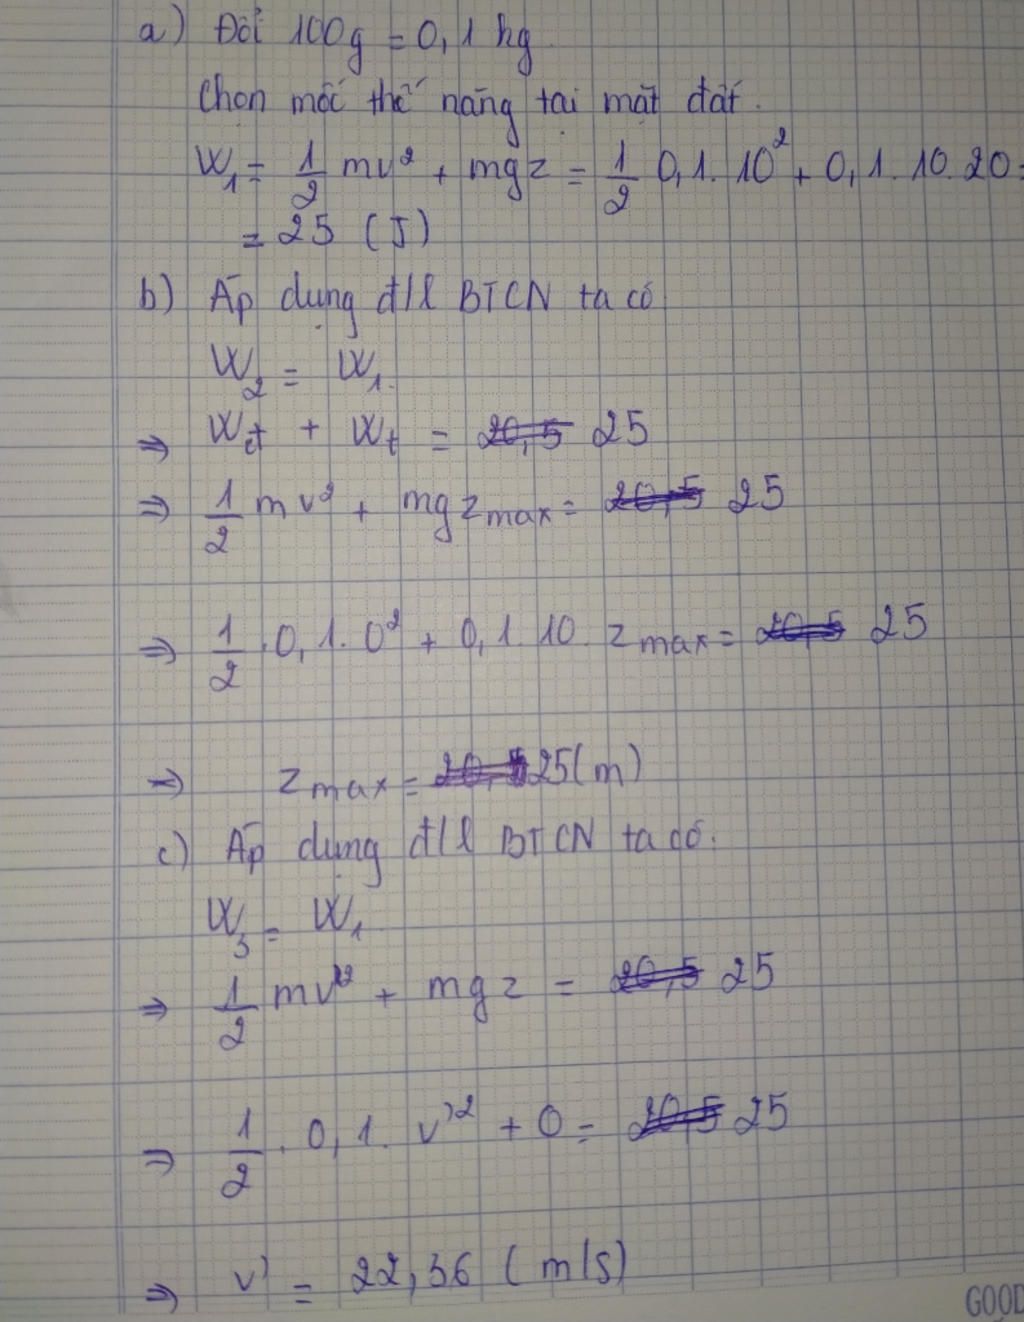 a) Đổi 100g = 0,1 kg.
Chọn mốc thế năng tại mặt đất.
W₁ = 1/2 mv² + mgz = 1/2 0,1. 10² + 0,1. 10. 20 =
= 25 (J)
b) Áp dụng đ/l BTCN ta có
W₂ = W₁.
⇒ Wđ + Wt = 20,5 25
⇒ 1/2 mv² + mgz max = 20,5 25
⇒ 1/2 . 0,1. 0² + 0,1. 10. z max = 20,5 25
⇒ z max = 20,5 25 (m)
c) Áp dụng đ/l BTCN ta có.
W₃ = W₁
⇒ 1/2 mv'² + mgz = 20,5 25
⇒ 1/2 . 0,1. v'² + 0 = 20,5 25
⇒ v' = 22,36 (m/s)
GOOD